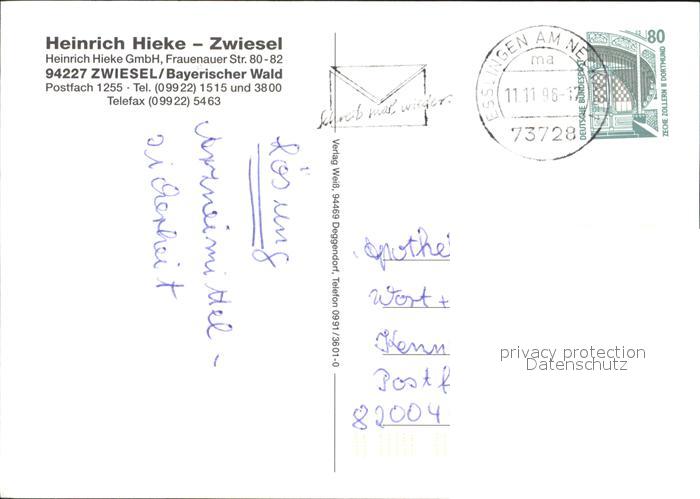 Heinrich Hieke – Zwiesel
Heinrich Hieke GmbH, Frauenauer Str. 80-82
94227 ZWIESEL/Bayerischer Wald
Postfach 1255 · Tel. (09922) 1515 und 3800
Telefax (09922) 5463
Schreib mal wieder.
ESSLINGEN AM NE
ma
11.11.96-1
73728
80
DEUTSCHE BUNDESPOST
ZECHE ZOLLERN II DORTMUND
Lösung
Arzneimittel-
sicherheit
Verlag Weiß, 94469 Deggendorf, Telefon 0991/3601-0
Apothe
Wort +
Kenn
Postf
82004
privacy protection
Datenschutz